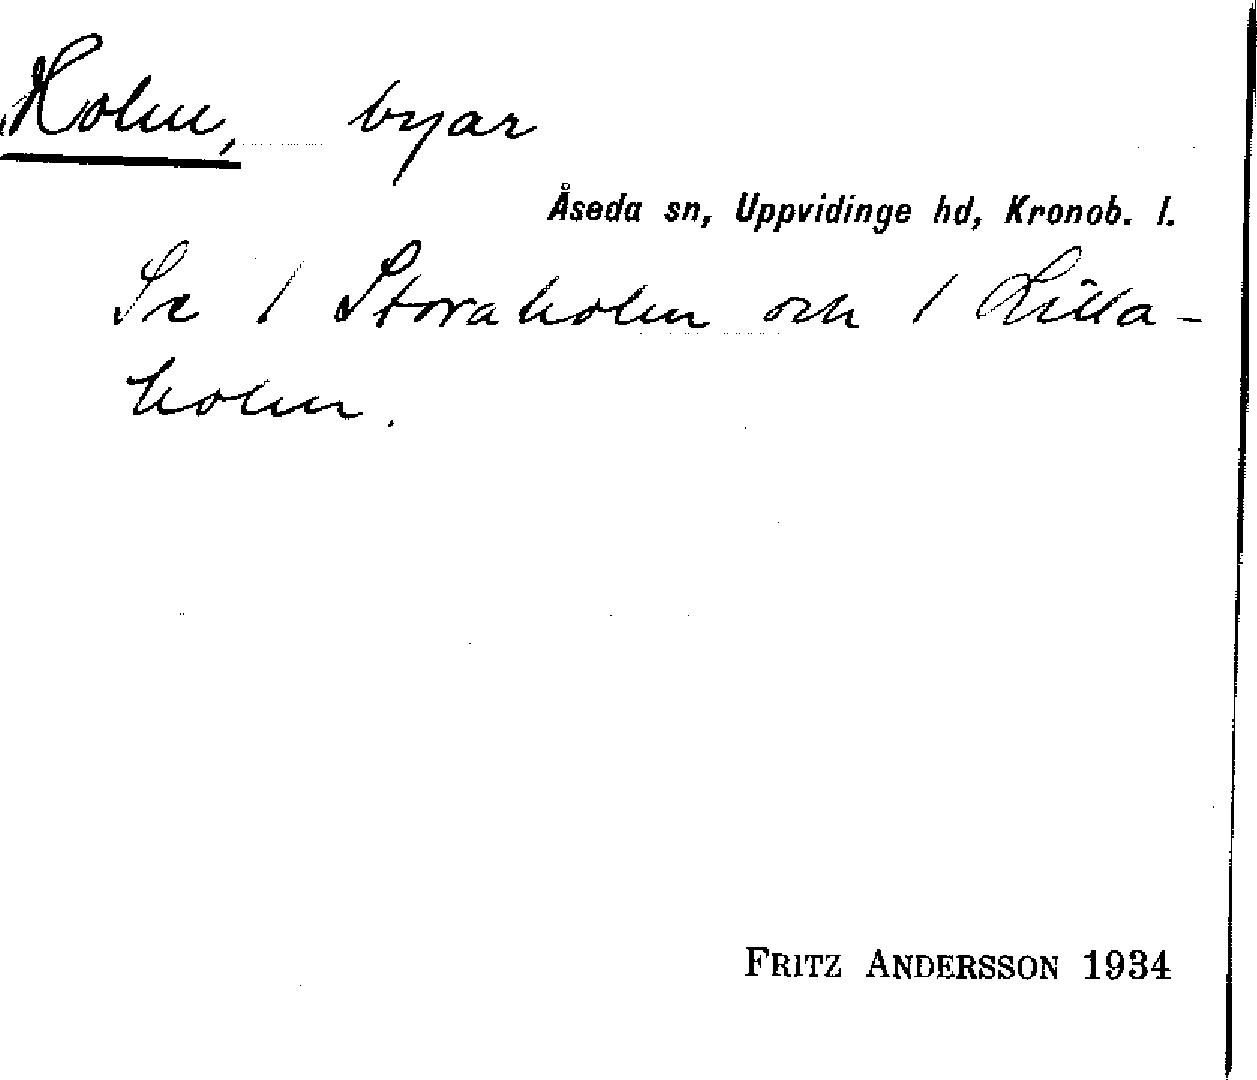 Holm, byar
Åseda sn, Uppvidinge hd, Kronob. l.
Se / Storaholm och / Lilla-
holm.
FRITZ ANDERSSON 1934